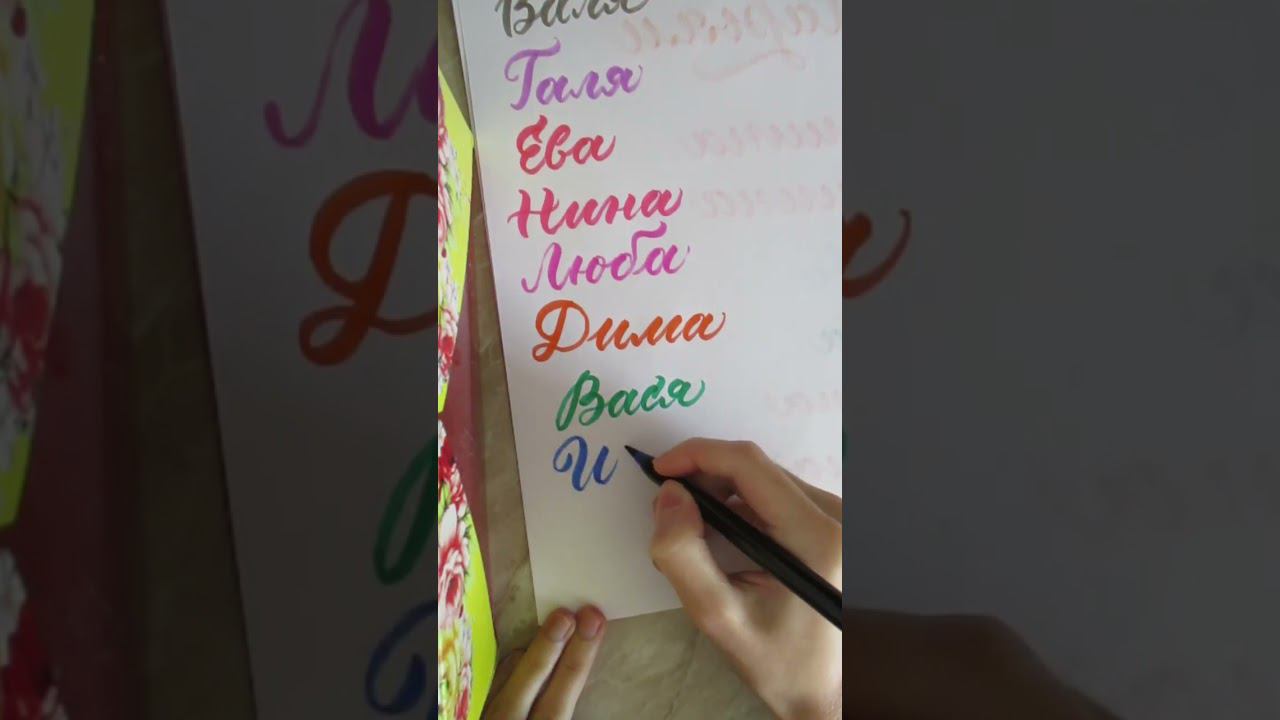 Валя
Галя
Ева
Нина
Люба
Дима
Вася
И